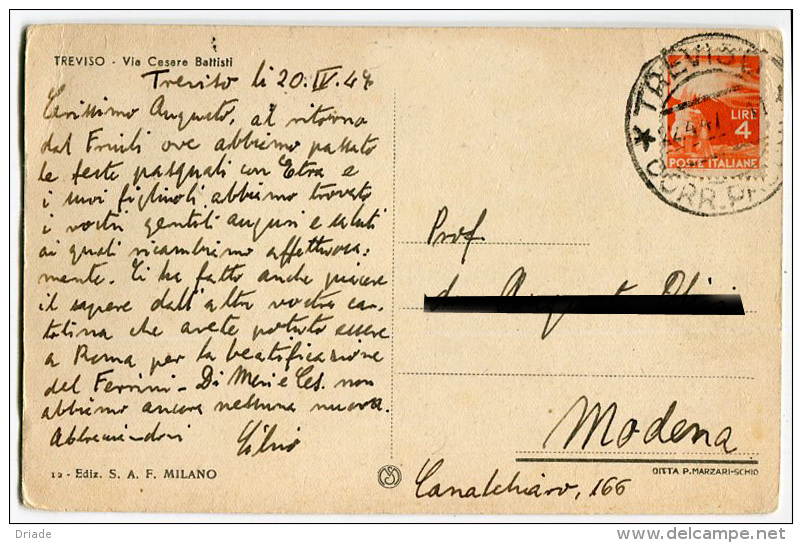 TREVISO - Via Cesare Battisti
Treviso li 20.IV.47
Carissimo Augusto, al ritorno
dal Friuli ove abbiamo passato
le feste pasquali con Etra e
i suoi figlinoli abbiamo trovato
i vostri gentili auguri e saluti
ai quali ricambiamo affettuosa=
mente. Ci ha fatto anche piacere
il sapere dall'altra vostra car=
tolina che avete potuto essere
a Roma per la beatificazione
del Ferrini - Di Meri e Ces. non
abbiamo ancora nessuna nuova.
Abbracciandovi Silvio
12 - Ediz. S. A. F. MILANO
TREVISO
CORR. PACCHI
LIRE
4
POSTE ITALIANE
Prof.
Modena
DITTA P. MARZARI-SCHIO
Canalchiaro, 166
Driade
http://www.delcampe.net